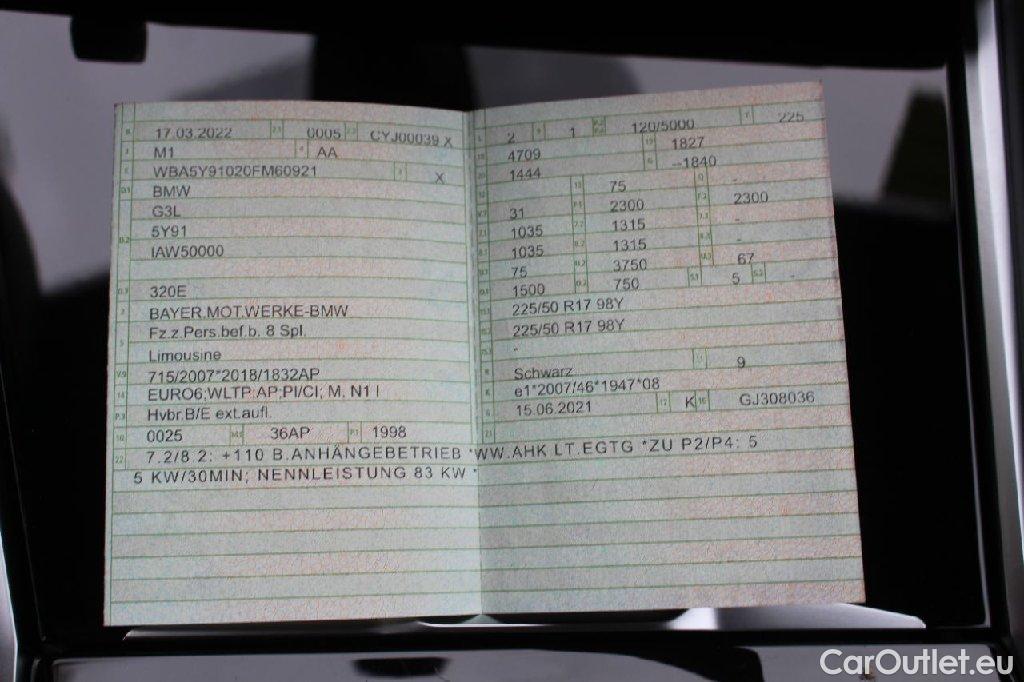 17.03.2022 0005 CYJ00039 X
M1 AA
WBA5Y91020FM60921 X
BMW
G3L
5Y91
IAW50000
320E
BAYER.MOT.WERKE-BMW
Fz.z.Pers.bef.b. 8 Spl.
Limousine
715/2007*2018/1832AP
EURO6;WLTP;AP;PI/CI; M, N1 I
Hybr.B/E ext.aufl.
0025 36AP 1998
7.2/8.2: +110 B.ANHÄNGEBETRIEB *WW.AHK LT.EGTG *ZU P2/P4: 5
5 KW/30MIN; NENNLEISTUNG 83 KW *
2 1 120/5000 225
4709 1827
1444 --1840
75 - -
31 2300 2300
1035 1315 -
1035 1315 -
75 3750 67
1500 750 5 -
225/50 R17 98Y
225/50 R17 98Y
-
Schwarz 9
e1*2007/46*1947*08
15.06.2021 K GJ308036
CarOutlet.eu